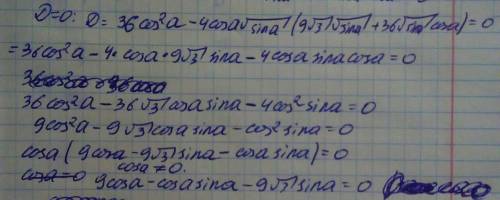 D=0: D= 36cos²a - 4cosa√sina (9√3√sina + 36√sina cosa) = 0
= 36cos²a - 4·cosa·9√3 sina - 4cosa sina cosa = 0
36cos²a - 36√3 cosa sina - 4cos²·sina = 0
9cos²a - 9√3 cosa sina - cos²sina = 0
cosa (9cosa - 9√3 sina - cosa sina) = 0
cosa = 0 cosa ≠ 0. 9cosa - cosa sina - 9√3 sina = 0